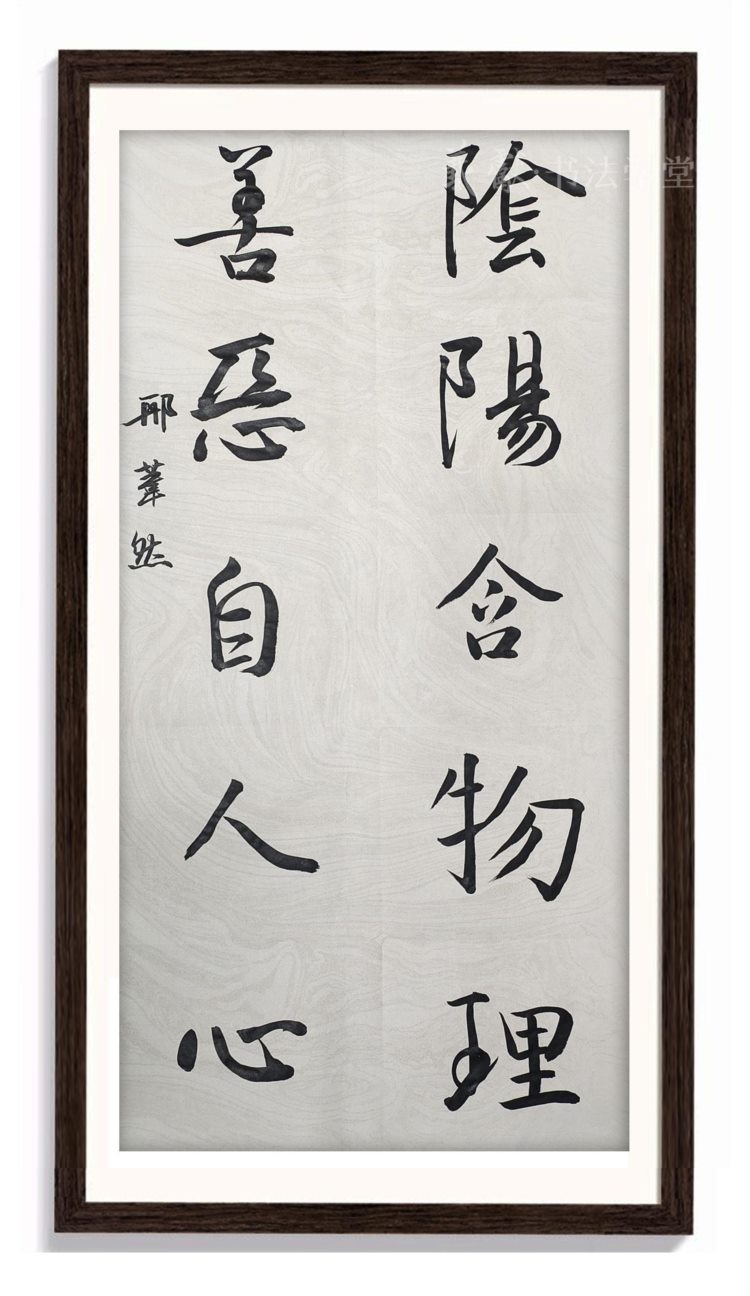 陰陽含物理
善惡自人心
邢葦然
书法学堂